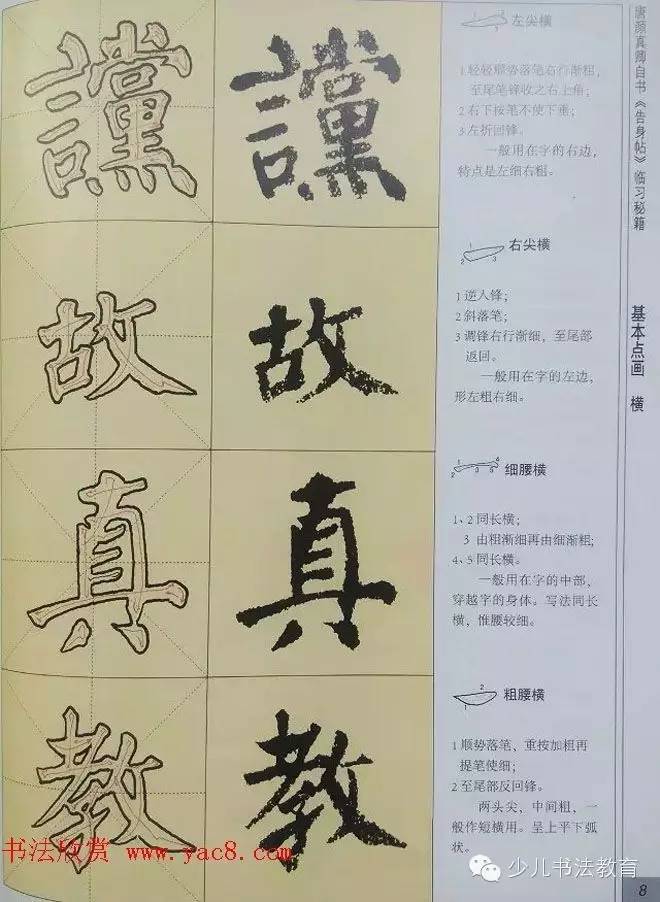 讜 讜
故 故
真 真
教 教
左尖横
1 轻轻顺势落笔右行渐粗，
至尾笔锋收之右上角；
2 右下按笔不使下垂；
3 左折回锋。
一般用在字的右边，
特点是左细右粗。
右尖横
1 逆人锋；
2 斜落笔；
3 调锋右行渐细，至尾部
返回。
一般用在字的左边，
形左粗右细。
细腰横
1、2 同长横；
3 由粗渐细再由细渐粗；
4、5 同长横。
一般用在字的中部，
穿越字的身体。写法同长
横，惟腰较细。
粗腰横
1 顺势落笔，重按加粗再
提笔使细；
2 至尾部反回锋。
两头尖，中间粗，一
般作短横用。呈上平下弧
状。
唐颜真卿自书《告身帖》临习秘籍
基本点画 横
8
书法欣赏 www.yac8.com
少儿书法教育